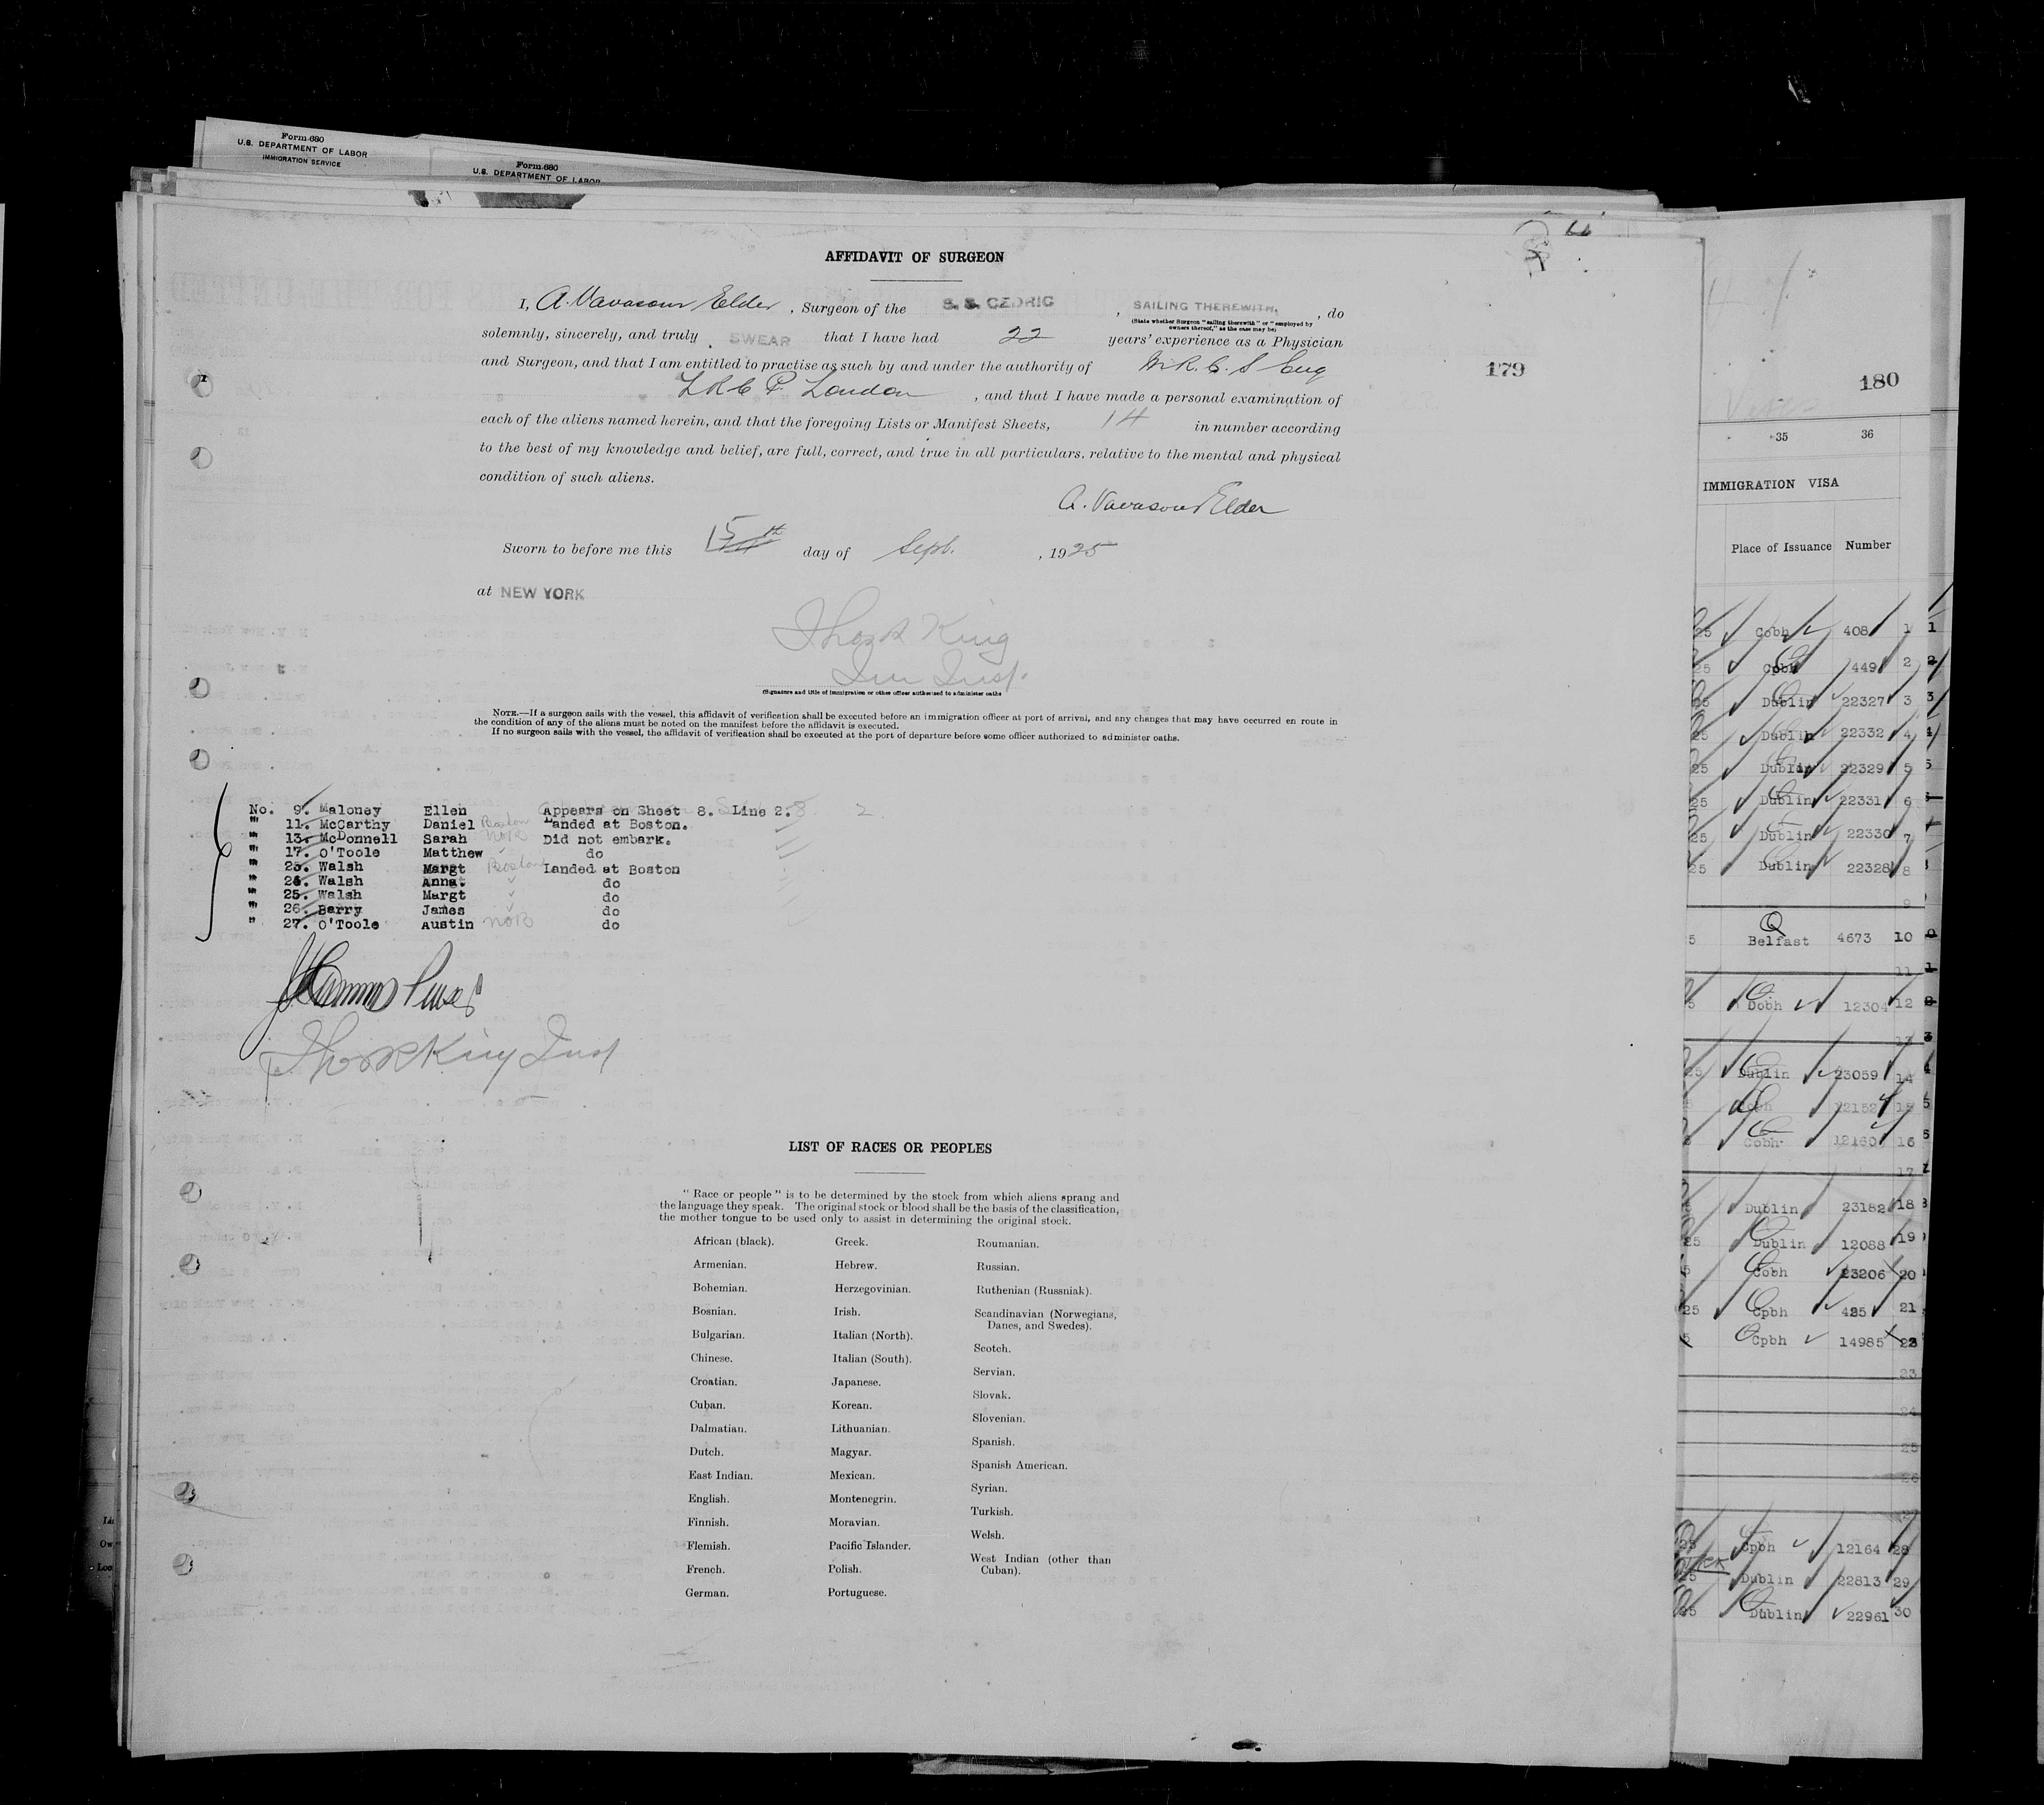 Form 680
U.S. DEPARTMENT OF LABOR
IMMIGRATION SERVICE
Form 680
U.S. DEPARTMENT OF LABOR
AFFIDAVIT OF SURGEON
I, A. Vavasour Elder, Surgeon of the S. S. CEDRIC, SAILING THEREWITH, , do
(State whether Surgeon "sailing therewith" or "employed by
owners thereof," as the case may be)
solemnly, sincerely, and truly SWEAR that I have had 22 years' experience as a Physician
and Surgeon, and that I am entitled to practise as such by and under the authority of M.R.C.S Eng
L R C P. London , and that I have made a personal examination of
each of the aliens named herein, and that the foregoing Lists or Manifest Sheets, 14 in number according
to the best of my knowledge and belief, are full, correct, and true in all particulars, relative to the mental and physical
condition of such aliens.
A. Vavasour Elder
Sworn to before me this 15th day of Sept. , 1925
at NEW YORK
King
Imm Insp.
(Signature and title of immigration or other officer authorized to administer oaths
NOTE.—If a surgeon sails with the vessel, this affidavit of verification shall be executed before an immigration officer at port of arrival, and any changes that may have occurred en route in
the condition of any of the aliens must be noted on the manifest before the affidavit is executed.
If no surgeon sails with the vessel, the affidavit of verification shall be executed at the port of departure before some officer authorized to administer oaths.
179
No. 9. Maloney Ellen Appears on Sheet 8. Line 2. 2
" 11. McCarthy Daniel Boston Landed at Boston.
" 13. McDonnell Sarah NOB Did not embark.
" 17. O'Toole Matthew do
" 23. Walsh Margt Boston Landed at Boston
" 24. Walsh Anna. do
" 25. Walsh Margt do
" 26. Barry James do
" 27. O'Toole Austin NOB do
Purser
King Insp
LIST OF RACES OR PEOPLES
"Race or people" is to be determined by the stock from which aliens sprang and
the language they speak. The original stock or blood shall be the basis of the classification,
the mother tongue to be used only to assist in determining the original stock.
African (black).
Armenian.
Bohemian.
Bosnian.
Bulgarian.
Chinese.
Croatian.
Cuban.
Dalmatian.
Dutch.
East Indian.
English.
Finnish.
Flemish.
French.
German.
Greek.
Hebrew.
Herzegovinian.
Irish.
Italian (North).
Italian (South).
Japanese.
Korean.
Lithuanian.
Magyar.
Mexican.
Montenegrin.
Moravian.
Pacific Islander.
Polish.
Portuguese.
Roumanian.
Russian.
Ruthenian (Russniak).
Scandinavian (Norwegians,
Danes, and Swedes).
Scotch.
Servian.
Slovak.
Slovenian.
Spanish.
Spanish American.
Syrian.
Turkish.
Welsh.
West Indian (other than
Cuban).
180
35 36
IMMIGRATION VISA
Place of Issuance Number
25 Cobh 408 1
25 Cobh 449 2
25 Dublin 22327 3
25 Dublin 22332 4
25 Dublin 22329 5
25 Dublin 22331 6
25 Dublin 22330 7
25 Dublin 22328 8
9
5 Belfast 4673 10
11
5 Cobh 12304 12
13
25 Dublin 23059 14
Cobh 12152 15
Cobh 12160 16
17
Dublin 23182 18
25 Dublin 12088 19
5 Cobh 23206 20
25 Cpbh 425 21
5 Cpbh 14985 22
23
24
25
26
27
25 Cpbh 12164 28
25 Dublin 22813 29
25 Dublin 22961 30